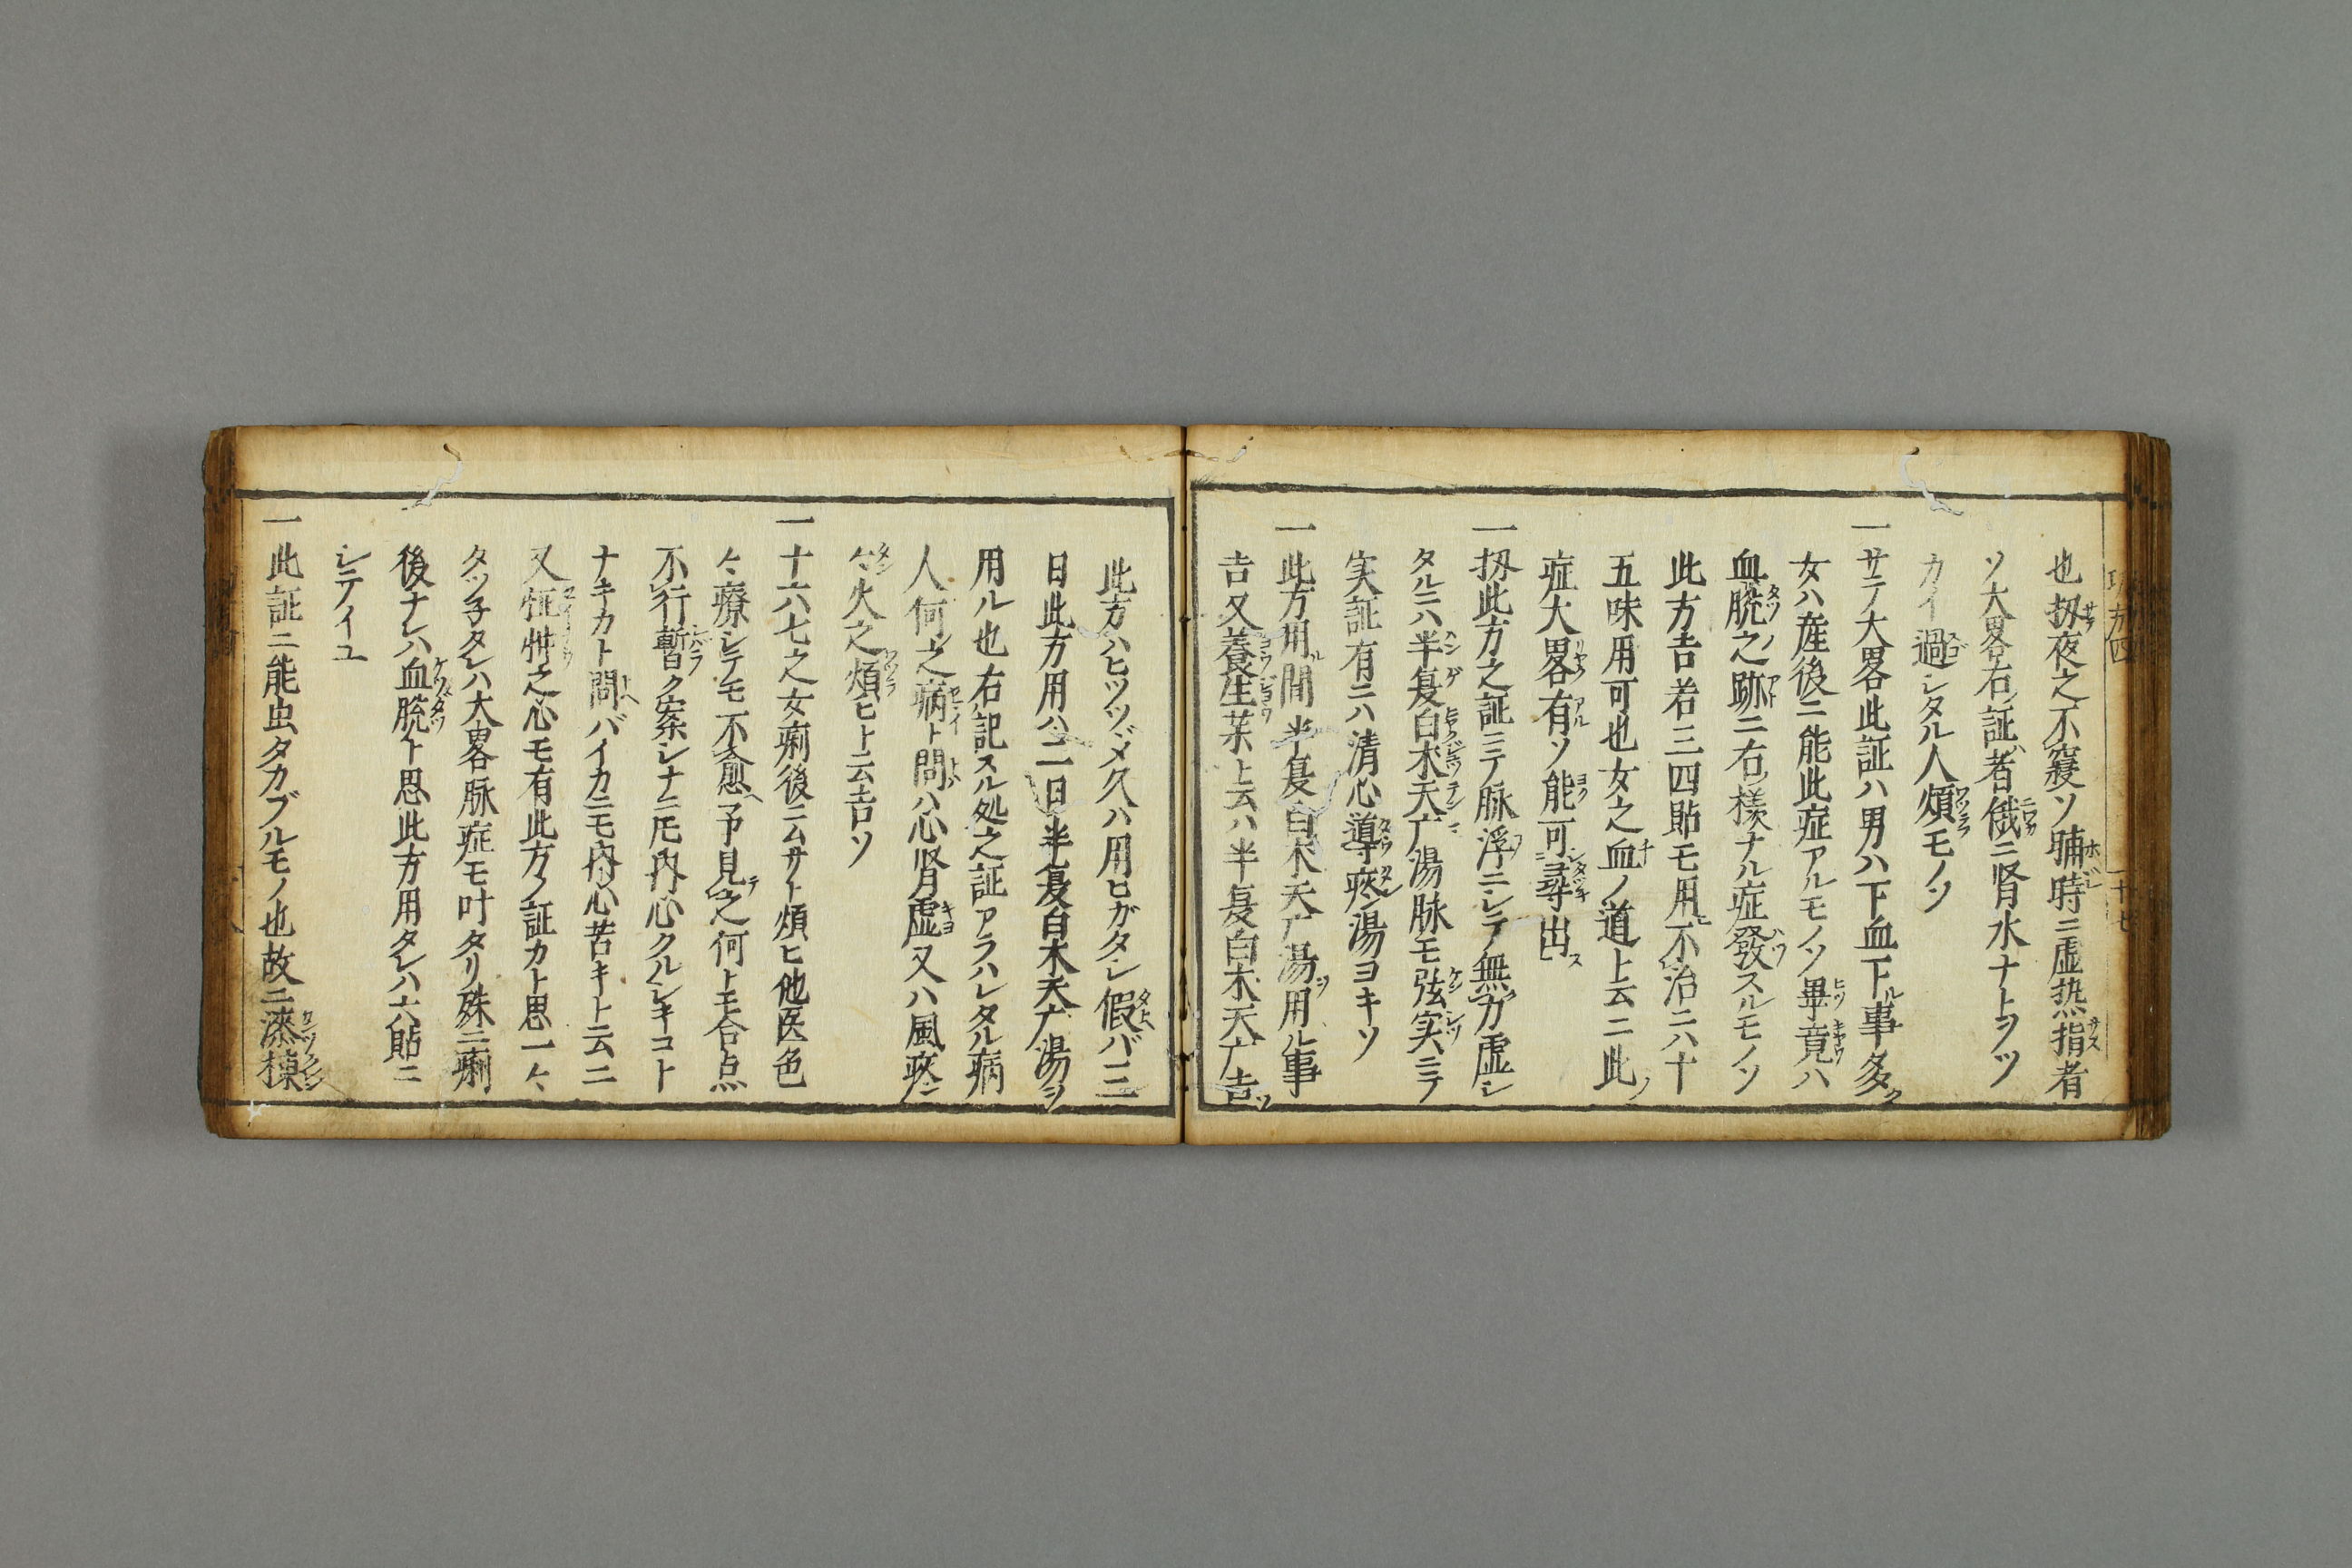 也扨夜之不寝ソ晡時ニ虚热指者
ソ大畧右ノ証ハ若俄ニ肾水ナトヲツ
カイ過シタル人煩モノソ
一サテ大畧此証ハ男ハ下血下ル事多ク
女ハ産後ニ能此症アルモノソ畢竟ハ
血脱之跡ニ右ノ様ナル症發スルモノソ
此方吉若三四貼モ用ヒ不治ニハ十
五味用可也女之血ノ道ト云ニ此ノ
症大畧有ソ能可尋出ス
一扨此方之証ニテ脉浮ニシテ無力虚シ
タルニハ半夏白术天广湯脉モ弦実ニテ
実証有ニハ清心導痰湯ヨキソ
一此方用ル間半夏白术天广湯ヲ用ル事
吉又養生薬ト云ハ半夏白术天广吉ソ
此方ハヒツヅメ久ハ用ヒガタシ假バ三
日此方用ハ二日半夏白术天广湯ヲ
用ル也右記スル処之証アラハレタル病
人何之病ト問ハ心肾虚又ハ風痰ニ
々火之煩ヒト云吉ソ
一十六七之女痢後ニムサト煩ヒ他医色
々療シテモ不愈予見テ之何トモ合点
不行暫ク案シナニ𪜈内心クルシキコト
ナキカト問バイカニモ内心苦キト云ニ
又怔忡之心モ有此方ノ証カト思一々
タツ子タレハ大畧脉症モ叶タリ殊ニ痢
後ナレハ血脱ト思此方用タレハ六貼ニ
シテイユ
一此証ニ能虫タカブルモノ也故ニ漆楝